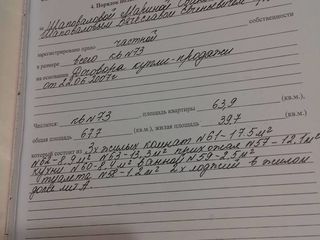 4. Порядок
за Шаповаловой Мариной
Шаповаловым Вячеславом Евгеньевичем
собственности
зарегистрировано право частной
в размере всего кв N73
на основании Договора купли-продажи
от 22.06.2007г
Числится: кв N73, площадь квартиры 63,9 (кв.м.),
общая площадь 67,7 (кв.м.), жилая площадь 39,7 (кв.м.),
который состоит из 3х жилых комнат N61-17.5м²
N62-8.9м² N63-13,3м² прихожая N57-12.1м²
кухни N60-8.4м² ванной N59-2.5м²
туалета N58-1.2м² 2х лоджий в жилом
доме лит.А